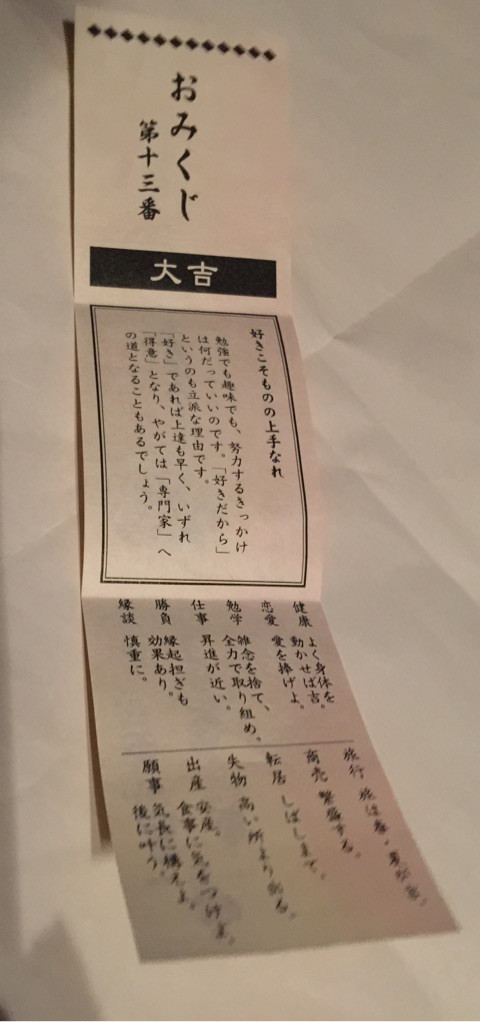 おみくじ
第十三番
大吉
好きこそものの上手なれ
勉強でも趣味でも、努力するきっかけ
は何だっていいのです。「好きだから」
というのも立派な理由です。
「好き」であれば上達も早く、いずれ
「得意」となり、やがては「専門家」へ
の道となることもあるでしょう。
健康 よく身体を
動かせば吉。
恋愛 愛を捧げよ。
勉学 雑念を捨て、
全力で取り組め。
仕事 昇進が近い。
勝負 縁起担ぎも
効果あり。
縁談 慎重に。
旅行 旅は
商売 繁盛する。
転居 しばしまて。
失物 高い所より出る。
出産 安産。
食事に気をつけよ。
願事 気長に構えよ。
後に叶う。